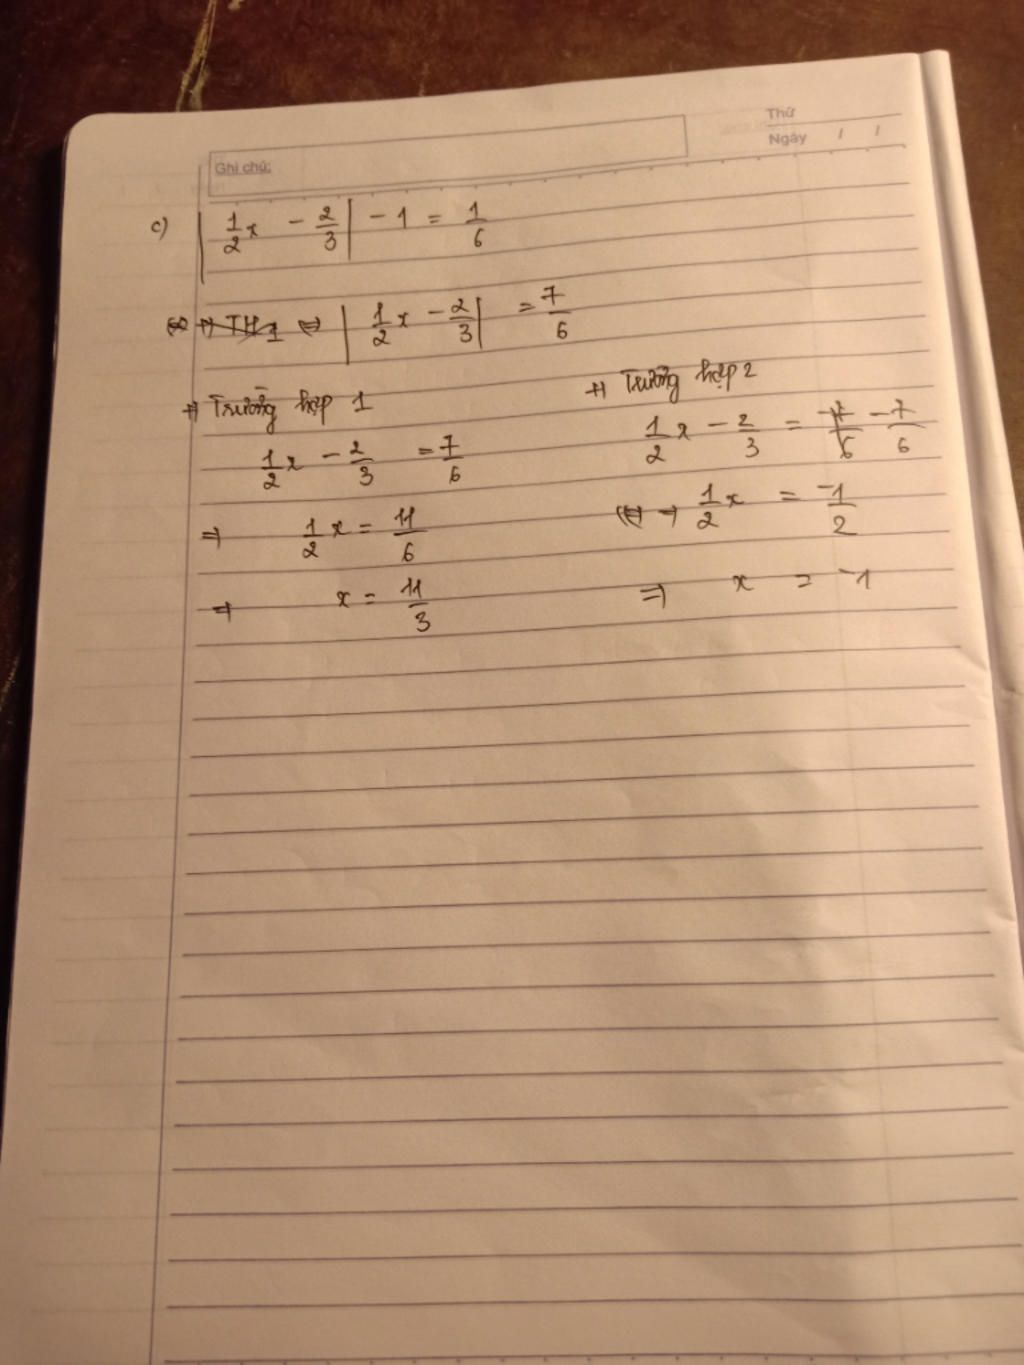 Thứ
Ngày / /
Ghi chú:
c) | 1/2 x - 2/3 | - 1 = 1/6
⇔ | 1/2 x - 2/3 | = 7/6
+) Trường hợp 1
1/2 x - 2/3 = 7/6
⇒ 1/2 x = 11/6
⇒ x = 11/3
+) Trường hợp 2
1/2 x - 2/3 = -7/6
⇒ 1/2 x = -1/2
⇒ x = -1